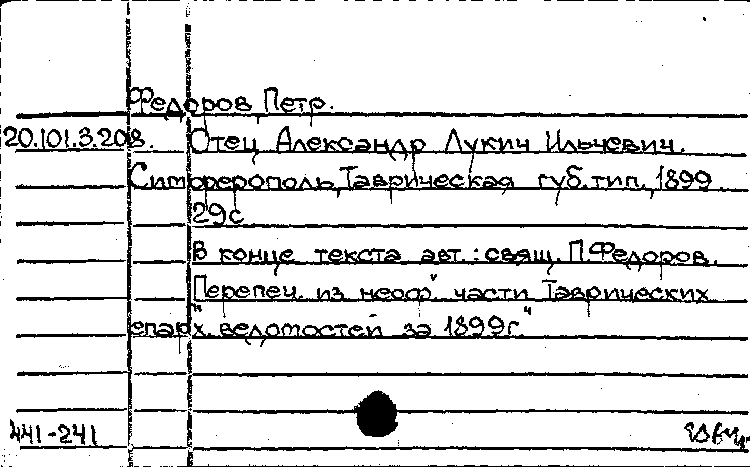 Федоров, Петр.
20.101.3.208. Отец Александр Лукич Ильчевич.
Симферополь, Таврическая губ. тип., 1899
29с
В конце текста авт.: свящ. П.Федоров.
Перепеч. из неоф" части Таврических
епарх. ведомостей за 1899г."
441-241